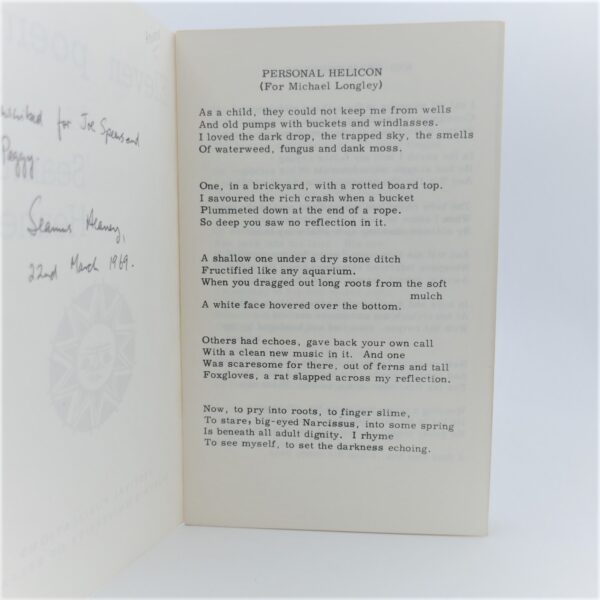 Inscribed for Joe Spears and
Peggy.
Seamus Heaney,
22nd March 1969.
PERSONAL HELICON
(For Michael Longley)
As a child, they could not keep me from wells
And old pumps with buckets and windlasses.
I loved the dark drop, the trapped sky, the smells
Of waterweed, fungus and dank moss.
One, in a brickyard, with a rotted board top.
I savoured the rich crash when a bucket
Plummeted down at the end of a rope.
So deep you saw no reflection in it.
A shallow one under a dry stone ditch
Fructified like any aquarium.
When you dragged out long roots from the soft
mulch
A white face hovered over the bottom.
Others had echoes, gave back your own call
With a clean new music in it. And one
Was scaresome for there, out of ferns and tall
Foxgloves, a rat slapped across my reflection.
Now, to pry into roots, to finger slime,
To stare, big-eyed Narcissus, into some spring
Is beneath all adult dignity. I rhyme
To see myself, to set the darkness echoing.